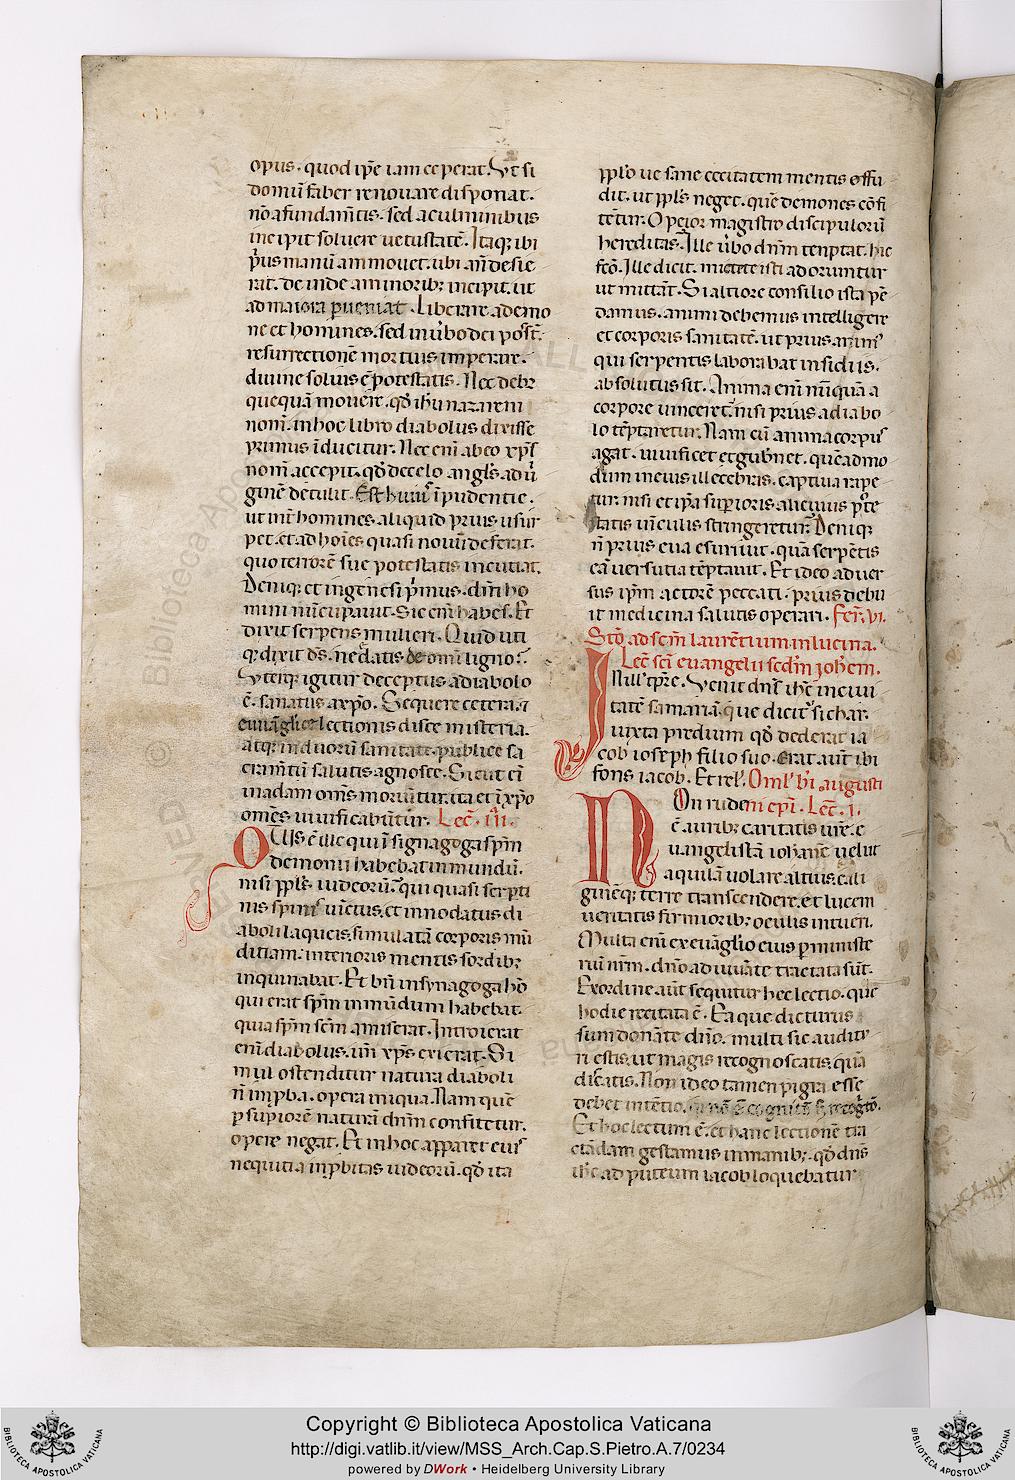 opus. quod ip̄e iam ceperat. Vt si
domū faber renouare disponat.
nō a fundam̄tis. sed a culminibus
incipit soluere uetustatē. Itaq; ibi
p̄us manū ammouet. ubi añ desie
rat. deinde a minorib; incipit. ut
ad maiora ꝑueniat. Liberare a demo
ne et homines. sed in u̓bo dei post.
resurrectionē mortuis imperare.
diuine soluis ē potestatis. Nec debꝫ
quequā mouere. qd̓ ih̓u nazareni
nom̄. in hoc libro diabolus dixisse
primus īducitur. Nec eni̅ ab eo xp̄s
nom̄ accepit. qd̓ de celo angl̓s ad u̓
ginē detulit. Est huiꝰ īpudentie.
ut int̓ homines aliquid prius usur
pet. et ad hoīes quasi nouū deferat.
quo terrorē sue potestatis incutiat.
Deniq; et in genesi p̓mus. dm̄ ho
mini nūcupauit. Sic eni̅ habes. Et
dixit serpens mulieri. Quid uti
q; dixit ds̄. ne edatis de omi̅ ligno?
Vterq; igitur deceptus a diabolo
ē. sanatus a xp̄o. Sequere cetera. ⁊
euuāglice lectionis disce misteria.
atq; in duorū sanitate. publice sa
cram̄tū salutis agnosce. Sicut eī
in adam om̄s moriūtur. ita et ī xp̄o
omēs uiuificabūtur. Lec̄. iii.
QVis ē ille qui ī signagoga sp̄m
demonii habebat inmundū.
nisi ppl̓s iudeorū. qui quasi serpēti
nis spiris uīctus. et innodatus di
aboli laqueis. simulatā corporis mū
ditiam. interioris mentis sordib;
inquinabat. Et bn̄ in synagoga hō
qui erat sp̄m inmūdum habebat.
quia sp̄m sc̄m amiserat. Introierat
eni̅ diabolus. un̄ xp̄s exierat. Si
mul ostenditur natura diaboli
n̄ īproba. opera iniqua. Nam quē
ꝑ supiorē naturā dn̄m confitetur.
opere negat. Et in hoc apparet eiꝰ
nequitia inꝓbitas iudeorū. qd̓ ita
ppl̓o ue sane cecitatem mentis offu
dit. ut ppl̓s neget. quē demones cōfi
tētur. O peior magistro discipulorū
hereditas. Ille u̓bo dn̄m temptat. hic
fc̄o. Ille dicit. mictete. isti adoriuntur
ut mittāt. Si altiore consilio ista pē
damus. animi debemus intelligere
et corporis sanitatē. ut prius animꝰ
qui serpentis laborabat insidiis.
absolutus sit. Anima eni̅ nūquā a
corpore uinceret̓. nisi prius a diabo
lo tēptaretur. Nam cū anima corpuꝰ
agat. uiuificet et gub̓net. quē admo
dum in eius illecebris. captiua rape
tur. nisi et ip̄a supioris alicuius pote
statis uīculis stringeretur. Deniq;
n̄ prius eua esuriuit. quā serpētis
eā uersutia tēptauit. Et ideo aduer
sus ip̄m actorē peccati. prius debu
it medicina salutis operari. Fer̄. vi.
Stō. ad sc̄m laurētium in lucina.
Lec̄ sc̄i euangelii sed̄m ioh̄em.
INill̓ tp̄re. Venit dn̄s ih̄c in ciui
tatē samariā. que dicit̓ sichar.
iuxta predium qd̓ dederat ia
cob ioseph filio suo. Erat aut̄ ibi
fons iacob. Et rel̓. Oml̓ b̓i augusti
NOn rudem ni epi̅. Lec̄. i.
ē auribꝫ caritatis ur̄e. e
uangelistā iohānē uelut
aquilā uolare altius. cali
ginēq; terre transcendere. et lucem
ueritatis firmiorib; oculis intueri.
Multa eni̅ ex euāglio eius ꝑ ministe
riū nr̄m. dn̄o adiuuāte tractata sūt.
Ex ordine aut̄ sequitur hec lectio. que
hodie recitata ē. Ea que dicturus
sum donāte dn̄o. multi sic audite
ri estis. ut magis recognoscatis. quā
discatis. Non ideo tamen pigra esse
debet intētio.
Et hoc lectum ē. et hanc lectionē tra
ctādam gestamus in manib;. qd̓ dn̄s
ih̄c ad puteum iacob loquebatur
Copyright © Biblioteca Apostolica Vaticana
http://digi.vatlib.it/view/MSS_Arch.Cap.S.Pietro.A.7/0234
powered by DWork • Heidelberg University Library
BIBLIOTECA APOSTOLICA VATICANA
BIBLIOTECA APOSTOLICA VATICANA